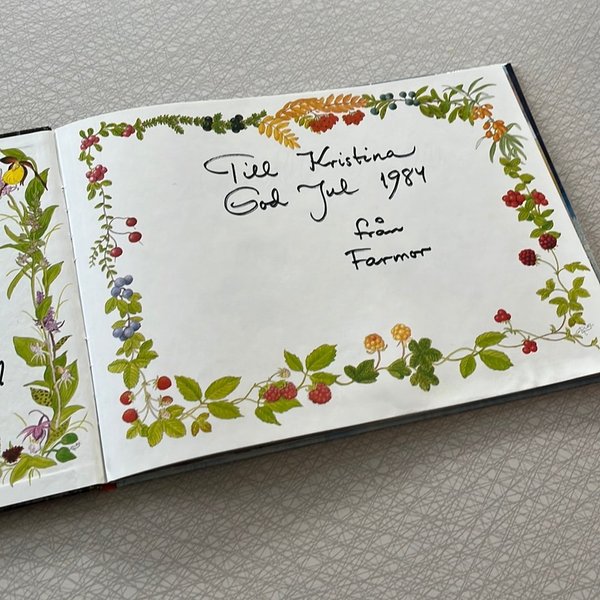 Till Kristina
God Jul 1984
från
Farmor